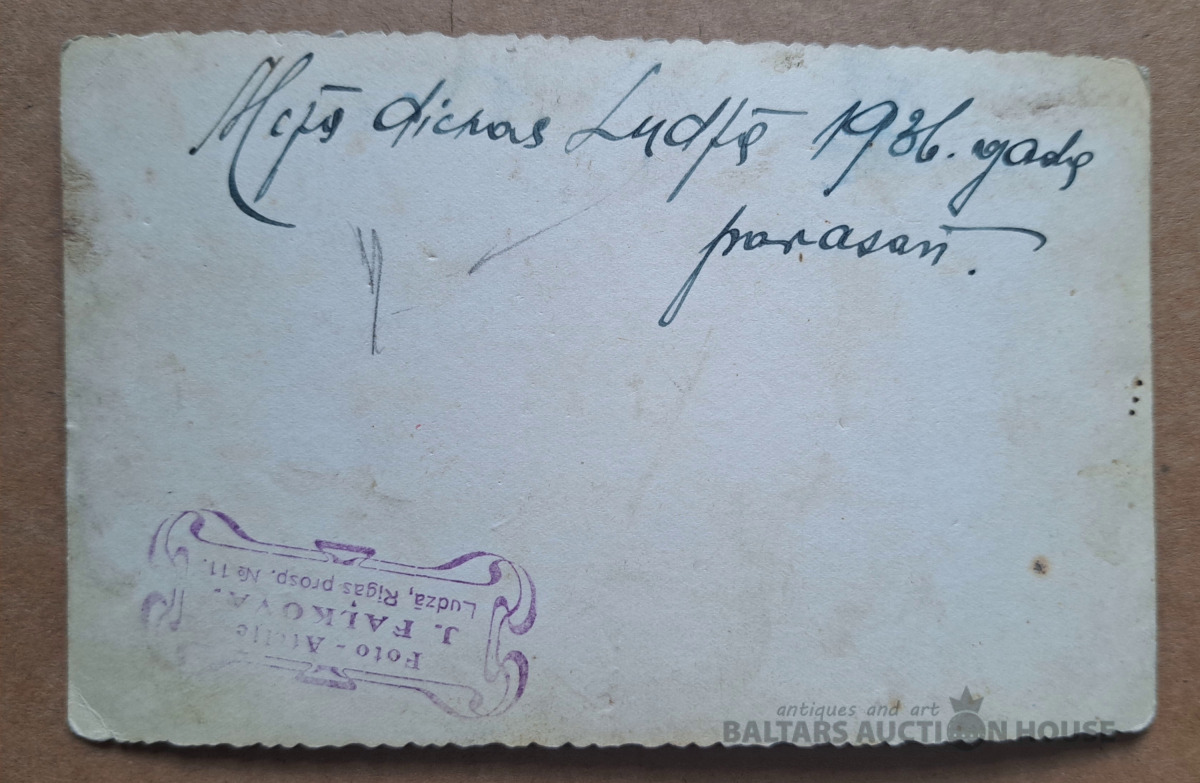 Meža dienas Ludzā 1936. gada
pavasarī.
Foto-Ateljē
J. FAĻKOVA,
Ludzā, Rīgas prosp. № 11.
antiques and art
BALTARS AUCTION HOUSE